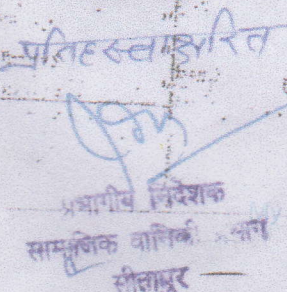 प्रतिहस्ताक्षरित
प्रभागीय निदेशक
सामाजिक वानिकी
सीतापुर